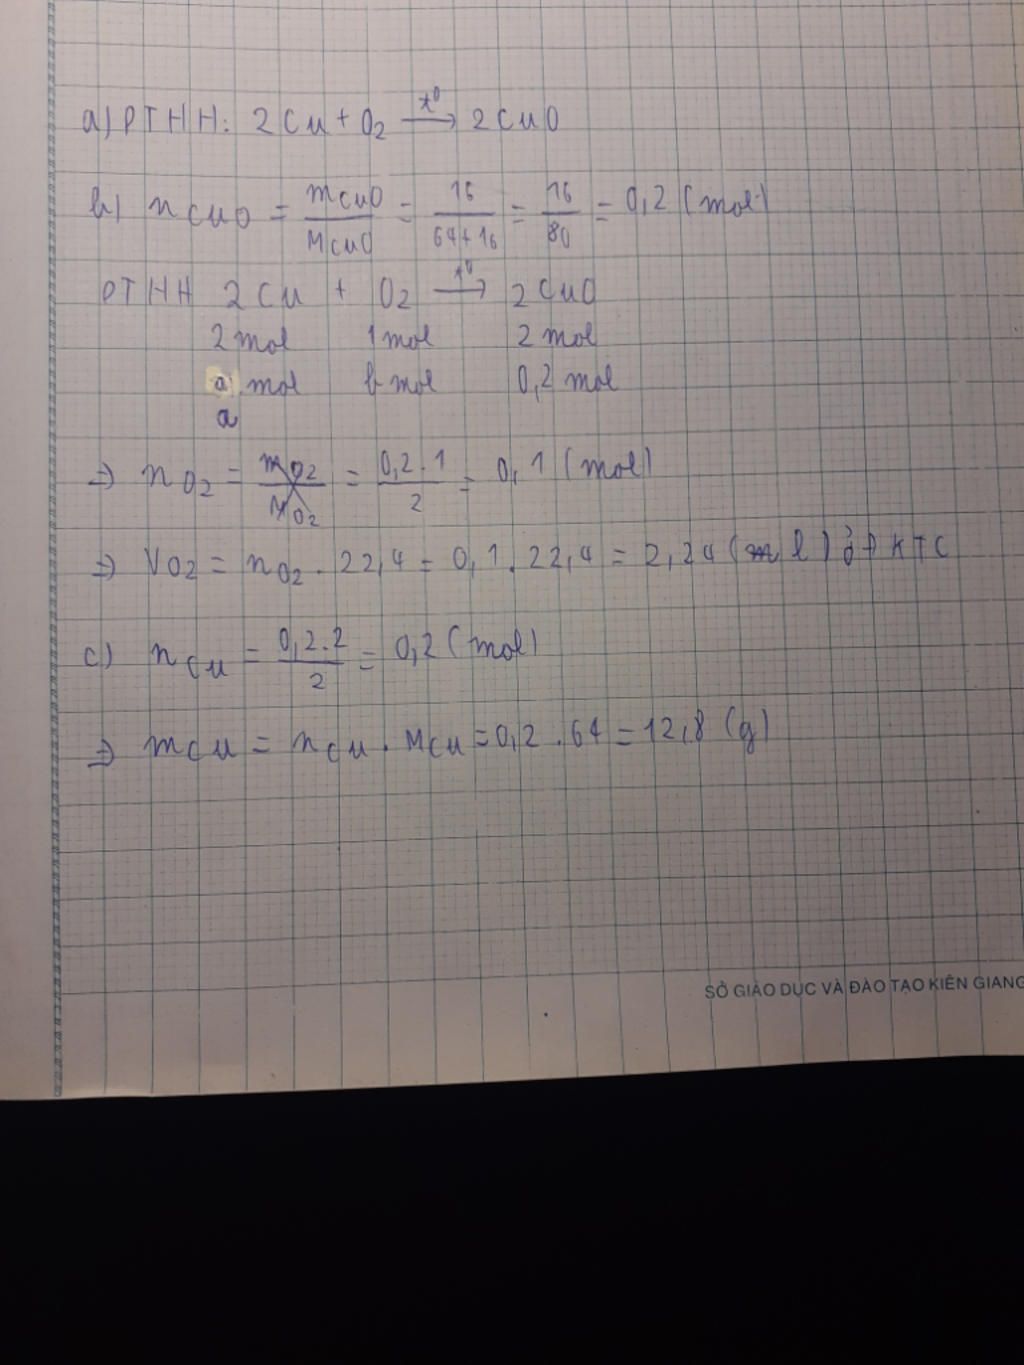 a) PTHH: 2Cu + O2 t⁰→ 2CuO
b) nCuO = mCuO/MCuO = 16/64+16 = 16/80 = 0,2 (mol)
PTHH 2Cu + O2 t⁰→ 2CuO
2 mol 1 mol 2 mol
a mol b mol 0,2 mol
a
⇒ nO2 = mO2/MO2 = 0,2.1/2 = 0,1 (mol)
⇒ VO2 = nO2 . 22,4 = 0,1 . 22,4 = 2,24 (l) ở ĐKTC
c) nCu = 0,2.2/2 = 0,2 (mol)
⇒ mCu = nCu . MCu = 0,2 . 64 = 12,8 (g)
SỞ GIÁO DỤC VÀ ĐÀO TẠO KIÊN GIANG